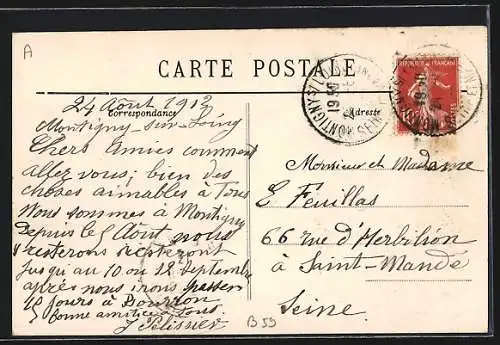 A
CARTE POSTALE
Correspondance
Adresse
24 Aout 1912
Montigny-sur-Loing
Chers Amies comment
allez vous; bien des
choses aimables à Tous
Nous sommes à Montigny
Depuis le 5 Août nous
resterons resteront
jusqu'au 10 ou 12 Septembre
après nous irons passer
15 jours à Bourron
bonne amitiée à tous.
J Pelisner
Monsieur et Madame
E Feuillas
66 rue d'Herbillon
à Saint-Mandé
Seine.
REPUBLIQUE FRANÇAISE
POSTES
MONTIGNY S/ LOING
B 59